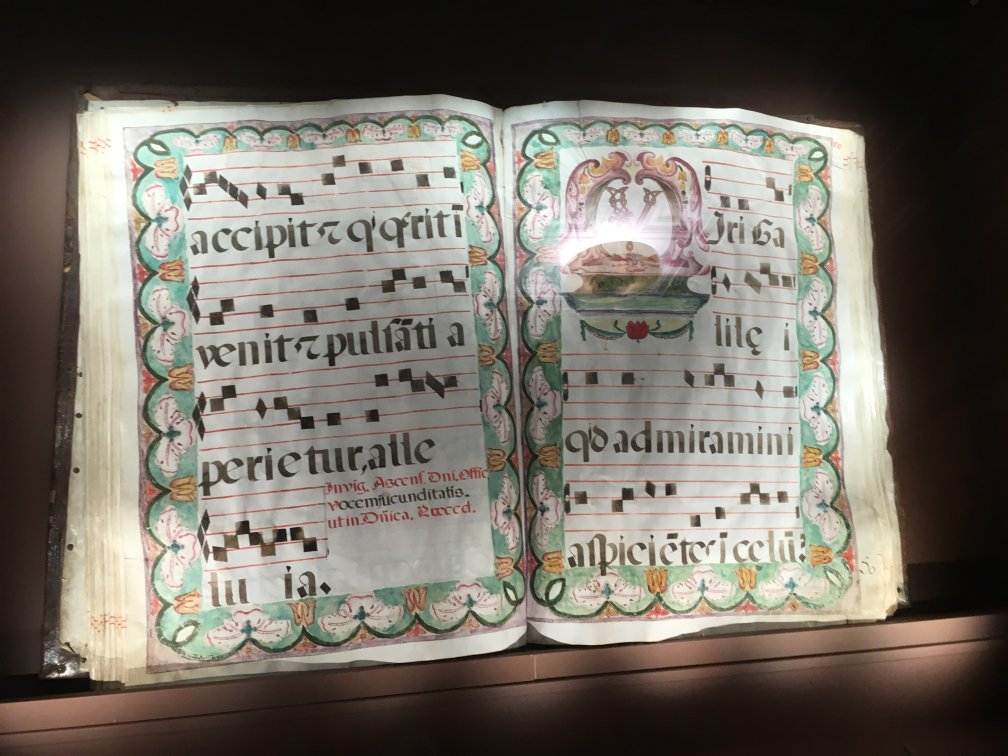 accipit ⁊ q̇ q̄rit ī
venit ⁊ pulsāti a
perietur, alle
Invig. Ascens. Dnī. Offic
vocem jucunditatis.
ut in Dn̄ica. Præced.
lu ia.
Iri Ga
lilę i
qd admiramini
aspiciētes ī celū?